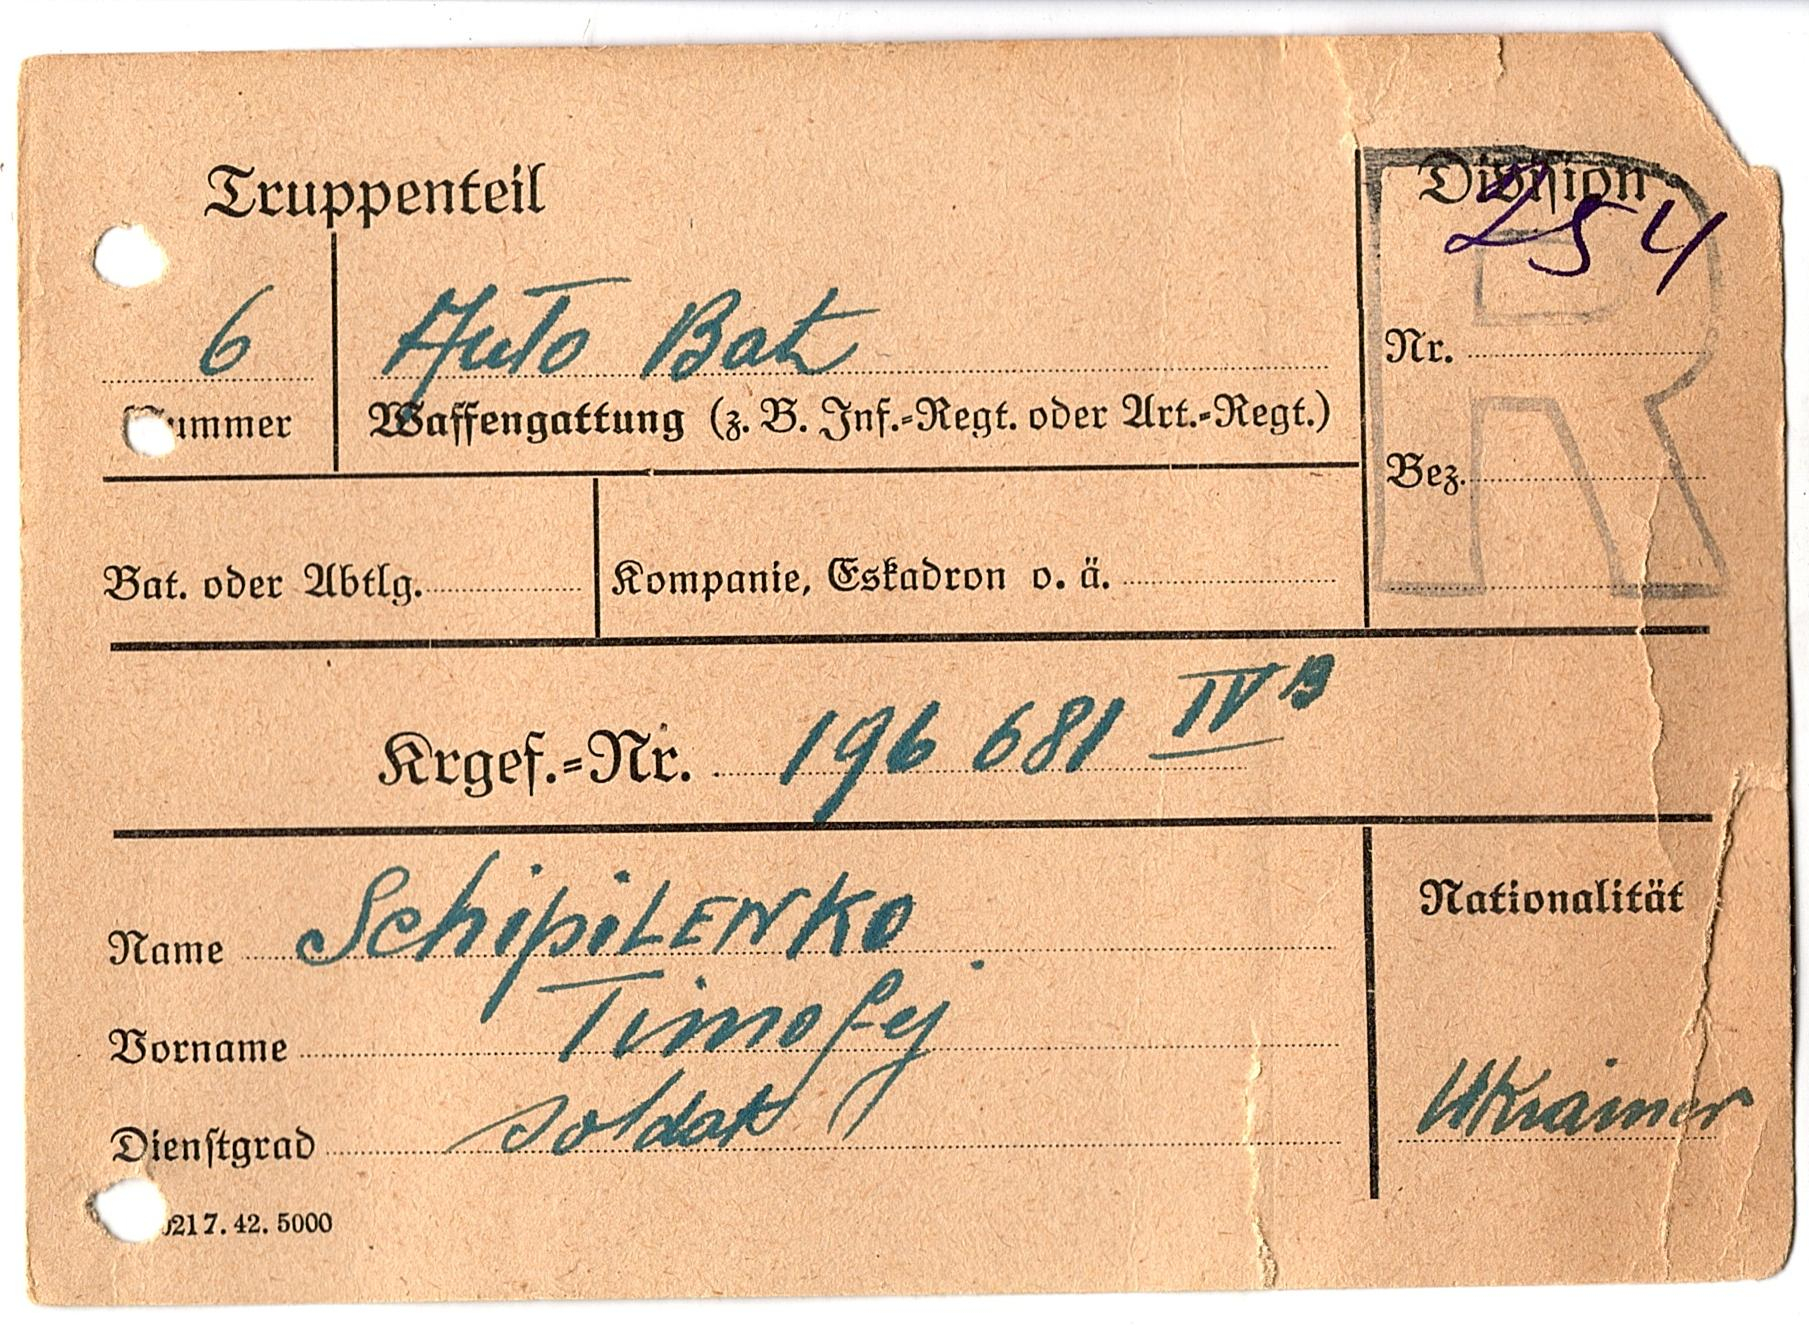 Truppenteil
Division
254
6 Auto Bat
Nr.
Nummer Waffengattung (z. B. Inf.-Regt. oder Art.-Regt.)
Bez.
R
Bat. oder Abtlg. Kompanie, Eskadron o. ä.
Krgef.-Nr. 196 681 IVB
Nationalität
Name SchipiLENKO
Vorname Timofej
Ukrainer
Dienstgrad soldat
217. 42. 5000